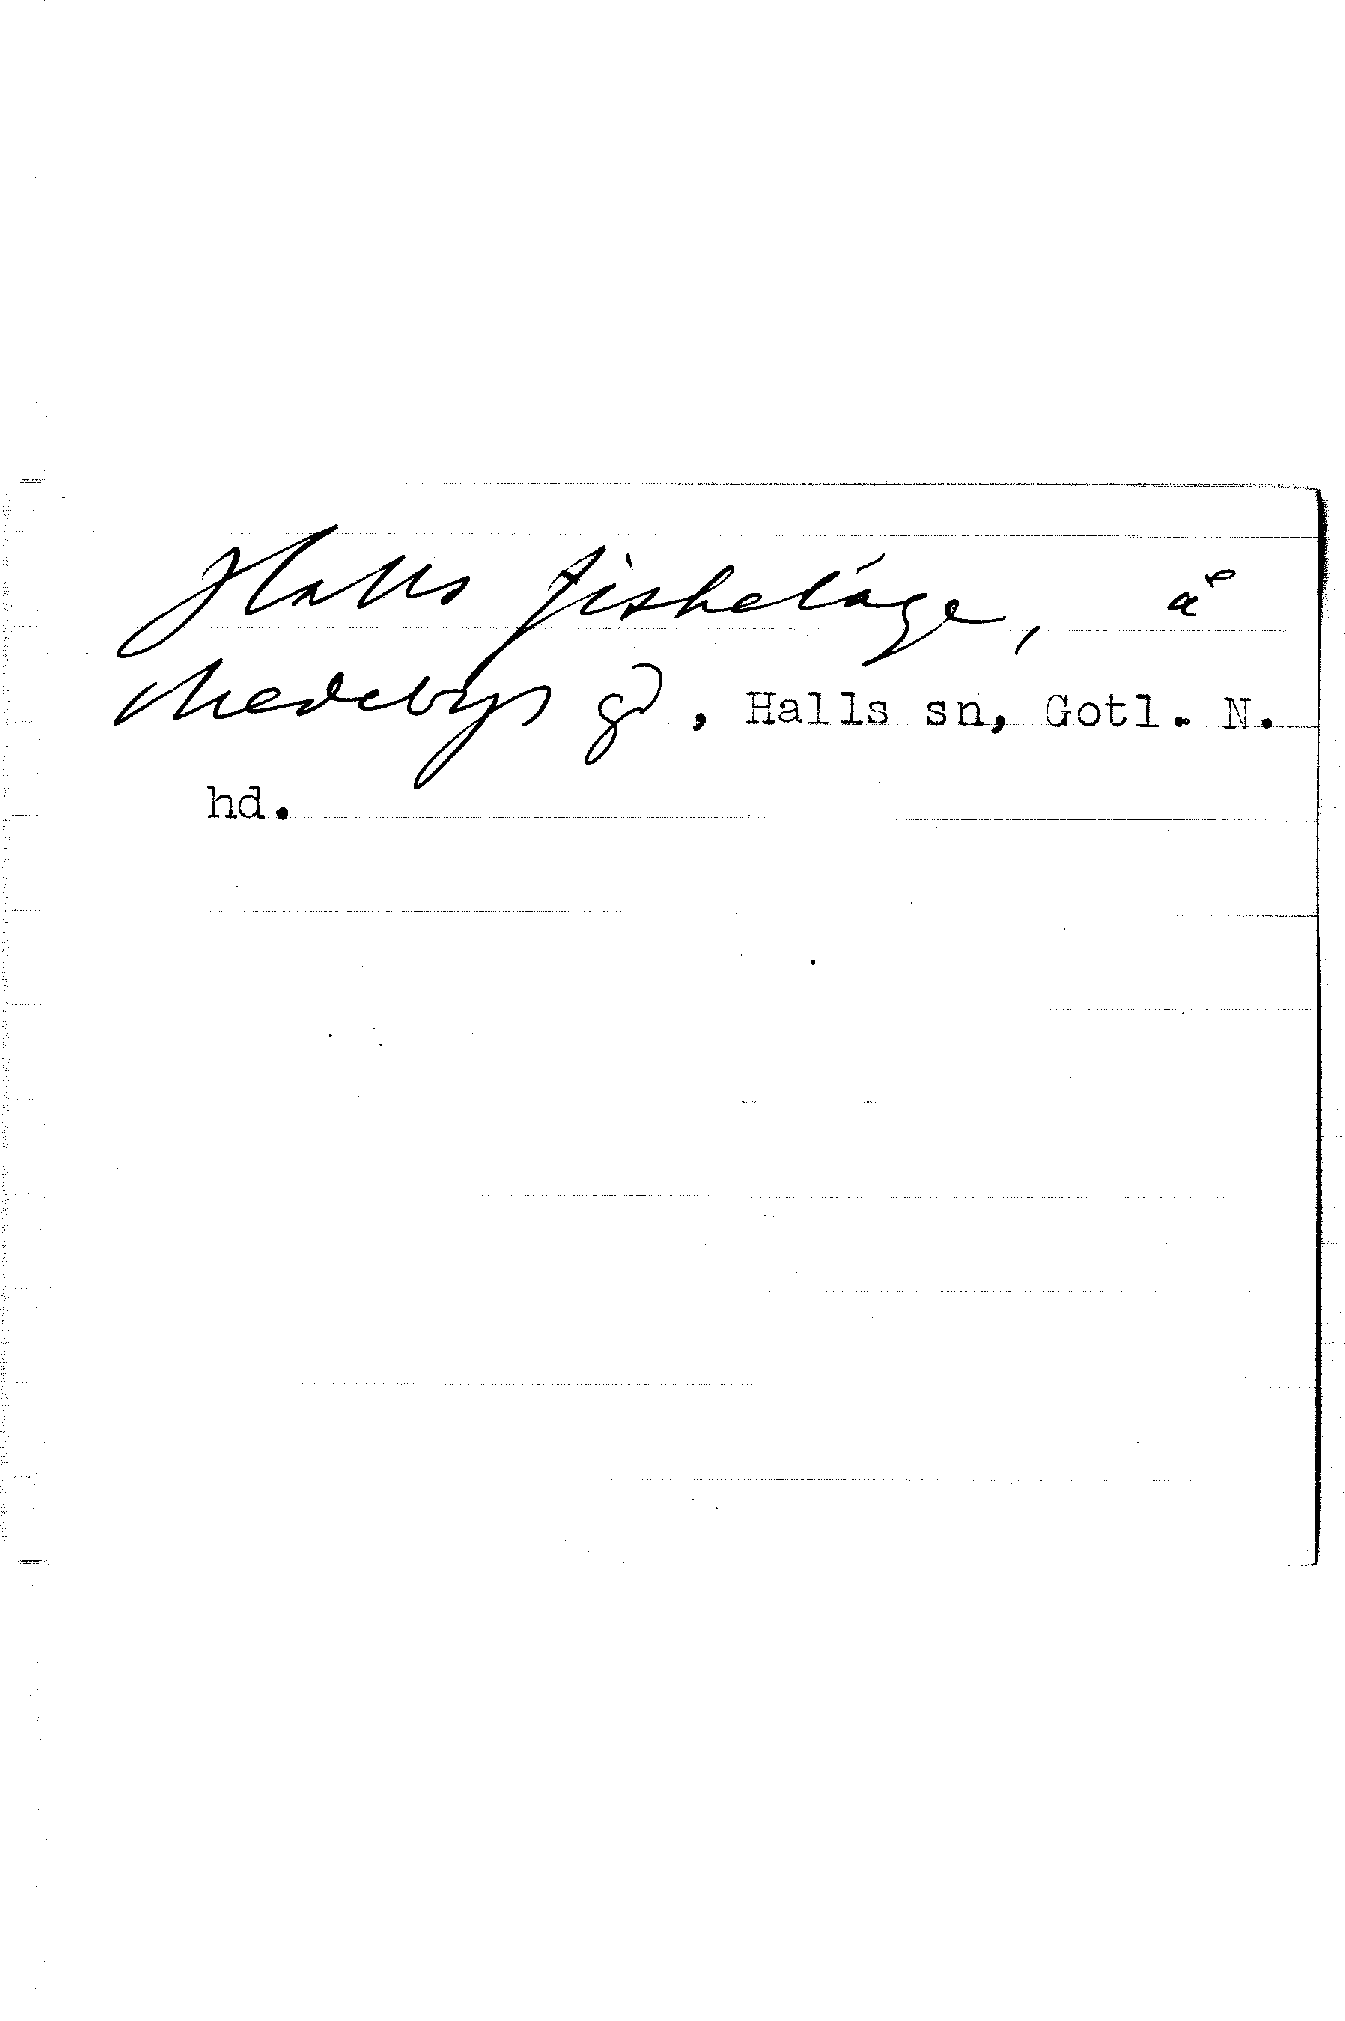 Halls fiskeläge, å
Medebys gd, Halls sn, Gotl. N.
hd.